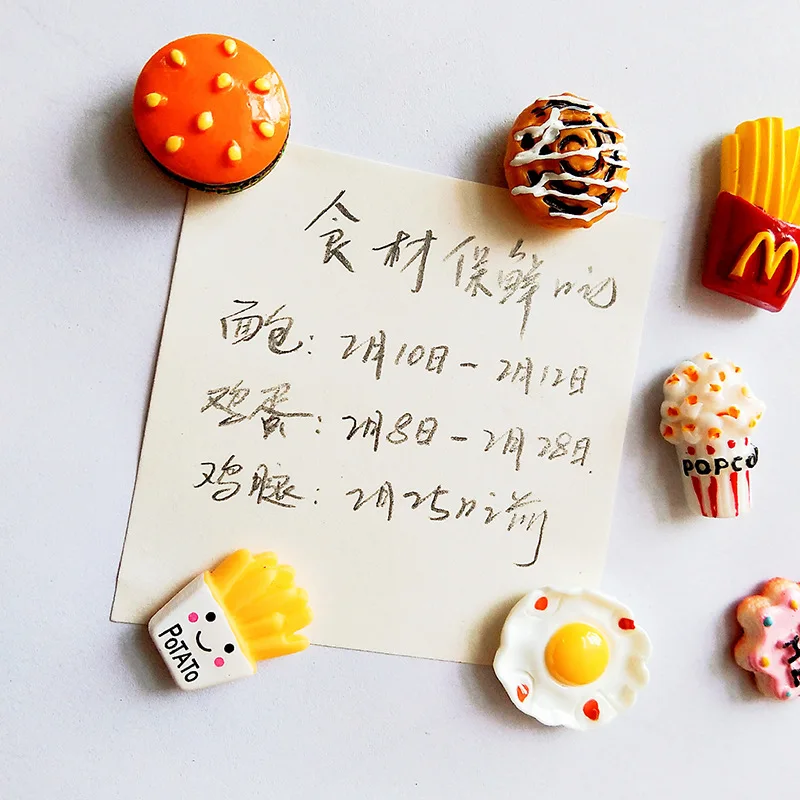 食材保鲜记
面包：2月10日-2月12日
鸡蛋：2月8日-2月28日.
鸡腿：2月25日之前
POTATO
POPCO
M